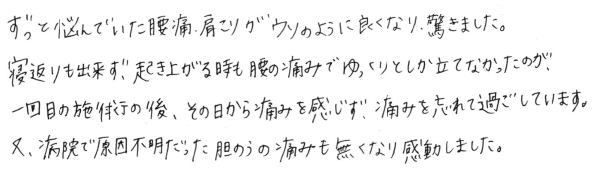 ずっと悩んでいた腰痛、肩こりがウソのように良くなり、驚きました。
寝返りも出来ず、起き上がる時も腰の痛みでゆっくりとしか立てなかったのが、
一回目の施術の後、その日から痛みを感じず、痛みを忘れて過ごしています。
又、病院で原因不明だった胆のうの痛みも無くなり感動しました。